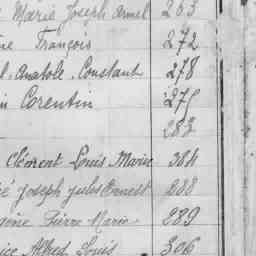 Marie Joseph Armel 263
François 272
Anatole, Constant 278
Corentin 275
283
Clément Louis Marie 384
Joseph Jules Ernest 288
Pierre Marie 289
Alfred Louis 306